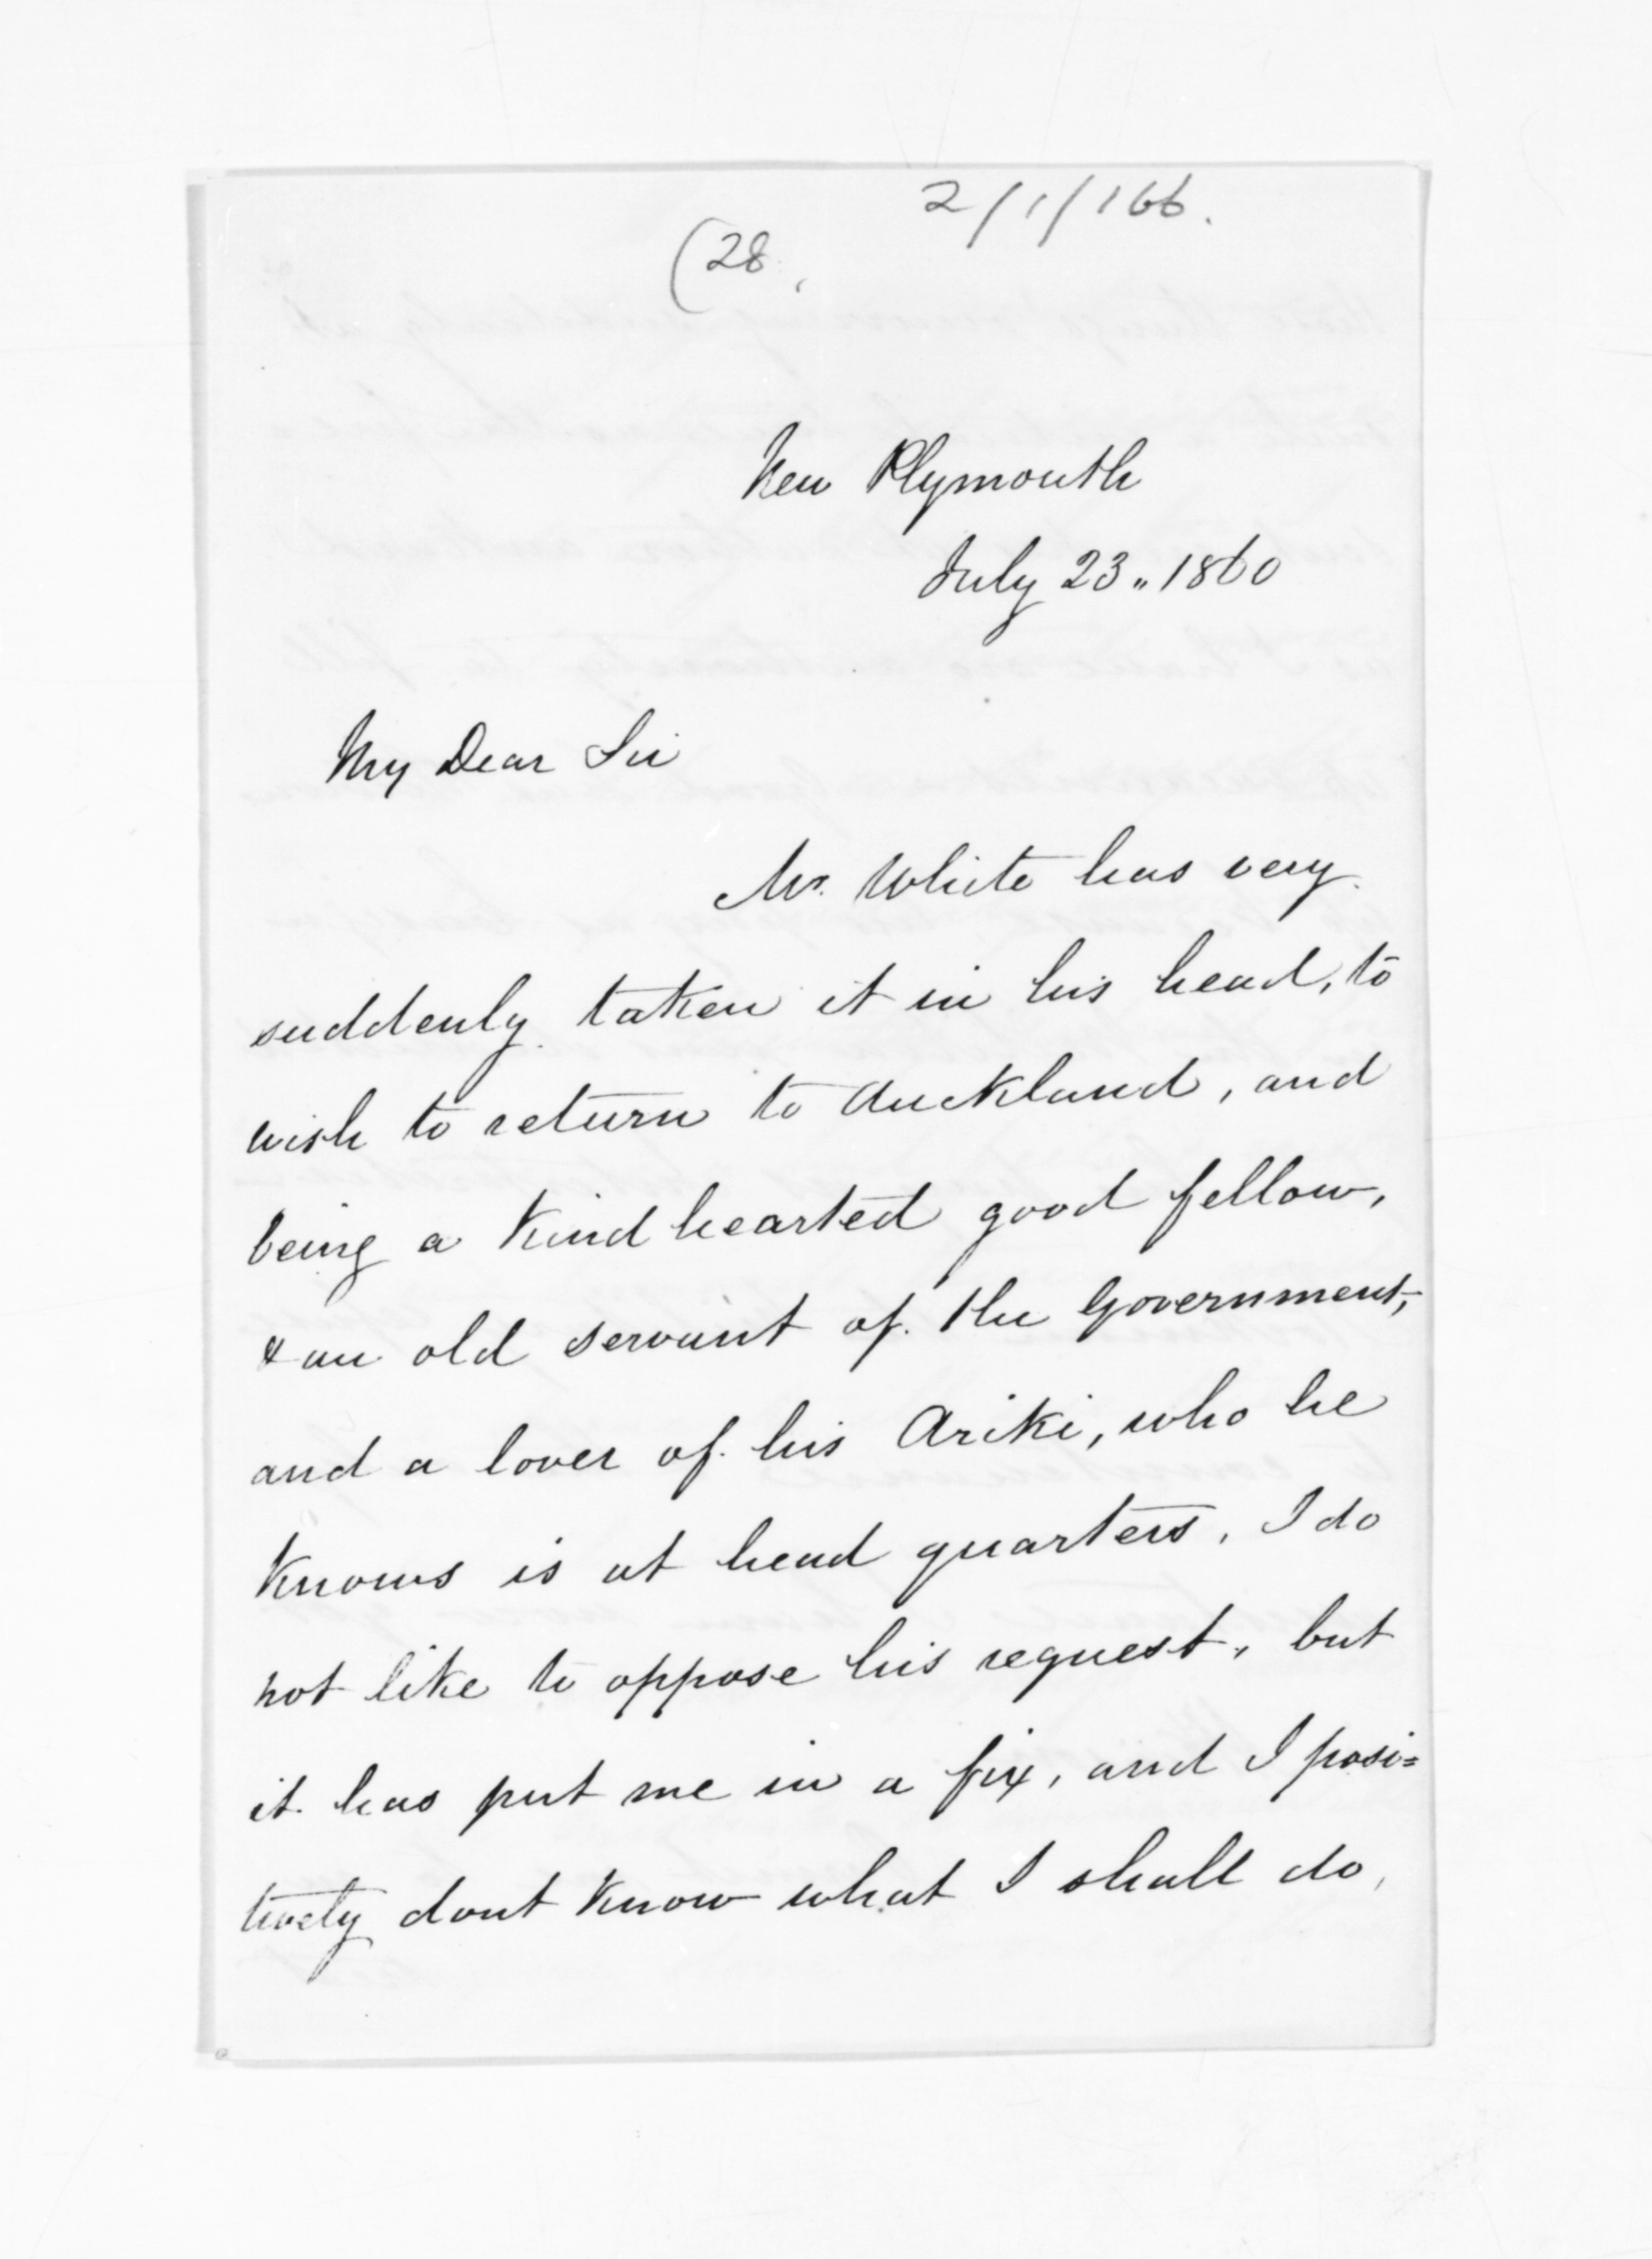 2/1/166.
(28.
New Plymouth
July 23,, 1860
My Dear Sir
Mr. White has very
suddenly taken it in his head, to
wish to return to Auckland, and
being a kind hearted good fellow,
& an old servant of the Government,
and a lover of his Ariki, who he
knows is at head quarters, I do
not like to oppose his request, but
it has put me in a fix, and I posi=
tively dont know what I shall do,